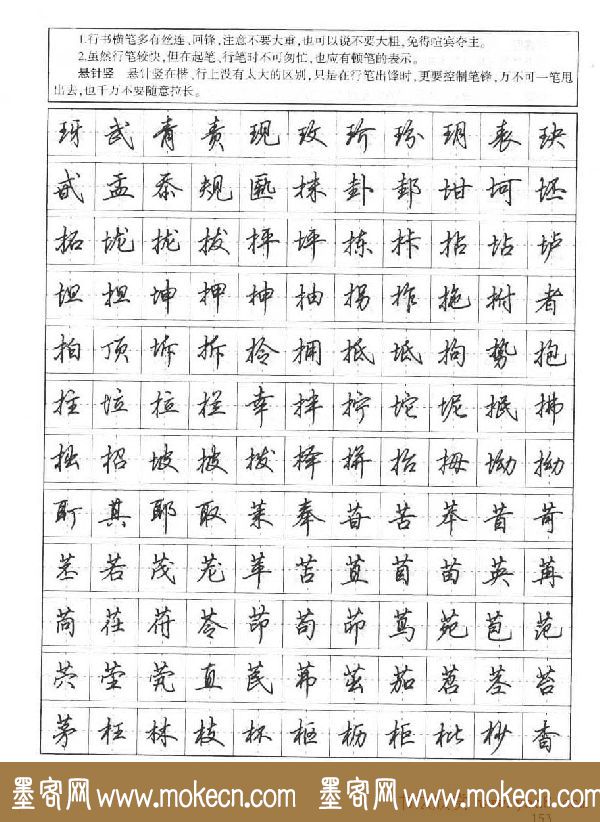 1.行书横笔多有丝连、回锋,注意不要太重,也可以说不要太粗,免得喧宾夺主。
2.虽然行笔较快,但在起笔、行笔时不可匆忙,也应有顿笔的表示。
悬针竖 悬针竖在楷、行上没有太大的区别,只是在行笔出锋时,更要控制笔锋,万不可一笔甩
出去,也千万不要随意拉长。
玡 武 青 责 现 玫 玠 玢 玥 表 玦
甙 盂 忝 规 匦 抹 卦 邽 坩 坷 坯
拓 垅 拢 拔 抨 坪 拣 拤 拈 坫 垆
坦 担 坤 押 抻 抽 拐 拃 拖 拊 者
拍 顶 坼 拆 拎 拥 抵 坻 拘 势 抱
拄 垃 拉 拦 幸 拌 拧 坨 坭 抿 拂
拙 招 坡 披 拨 择 拚 抬 拇 坳 拗
耵 其 耶 取 茉 奉 苷 苦 苯 昔 苛
若 茂 茏 苹 苫 苴 苜 苗 英 苒
茼 茌 苻 苓 茚 苟 茆 茑 苑 苞 范
茕 茔 茕 直 苠 茀 茁 茄 茗 茎 苔
茅 枉 林 枝 杯 枢 枥 柜 枇 杪 杳
墨客网 www.mokecn.com 墨客网 www.mokecn.com
153